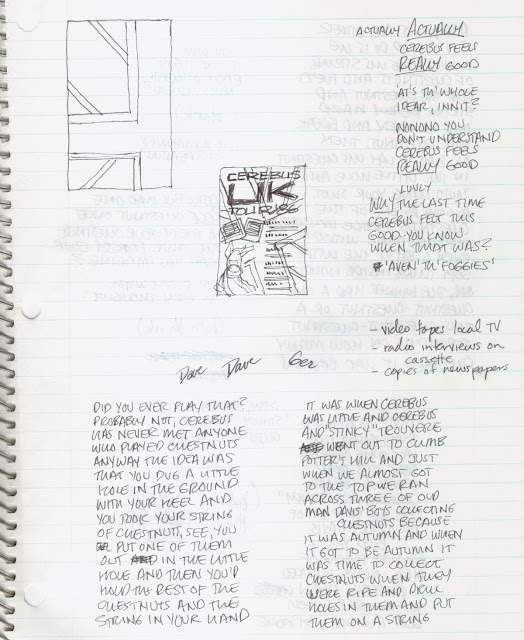 ACTUALLY ACTUALLY
CEREBUS FEELS
REALLY GOOD
AT'S TH' WHOLE
IDEAR, INNIT?
NONONO YOU
DON'T UNDERSTAND
CEREBUS FEELS
REALLY GOOD
LUVLY
WHY THE LAST TIME
CEREBUS FELT THIS
GOOD-YOU KNOW
WHEN THAT WAS?
'AVEN' TH' FOGGIES'
CEREBUS
UK
TOUR '86
- video tapes local TV
- radio interviews on
cassette
- copies of newspapers
Dave Dave Ger
DID YOU EVER PLAY THAT?
PROBABLY NOT, CEREBUS
HAS NEVER MET ANYONE
WHO PLAYED CHESTNUTS
ANYWAY THE IDEA WAS
THAT YOU DUG A LITTLE
HOLE IN THE GROUND
WITH YOUR HEEL AND
YOU TOOK YOUR STRING
OF CHESTNUTS, SEE, YOU
PUT ONE OF THEM
OUT IN THE LITTLE
HOLE AND THEN YOU'D
HOLD THE REST OF THE
CHESTNUTS AND THE
STRING IN YOUR HAND
IT WAS WHEN CEREBUS
WAS LITTLE AND CEREBUS
AND "STINKY" TROUVERE
WENT OUT TO CLIMB
POTTER'S HILL AND JUST
WHEN WE ALMOST GOT
TO THE TOP WE RAN
ACROSS THREE OF OLD
MAN DAVIS' BOYS COLLECTING
CHESTNUTS BECAUSE
IT WAS AUTUMN AND WHEN
IT GOT TO BE AUTUMN IT
WAS TIME TO COLLECT
CHESTNUTS WHEN THEY
WERE RIPE AND DRILL
HOLES IN THEM AND PUT
THEM ON A STRING